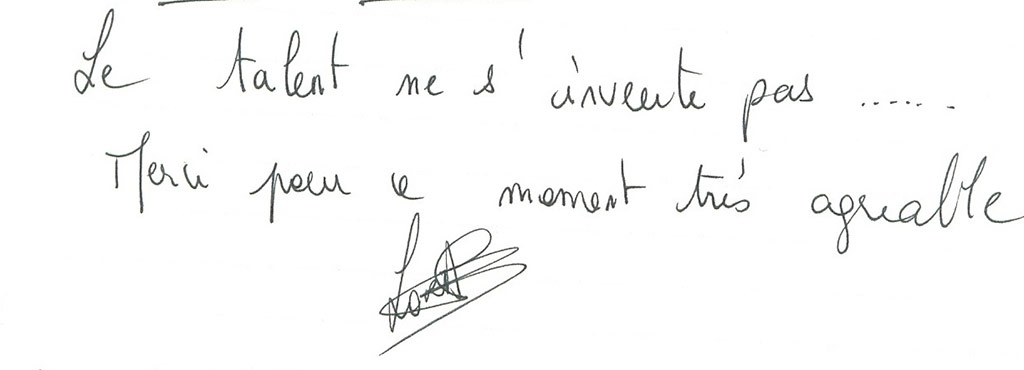 Le talent ne s'invente pas ......
Merci pour ce moment très agréable